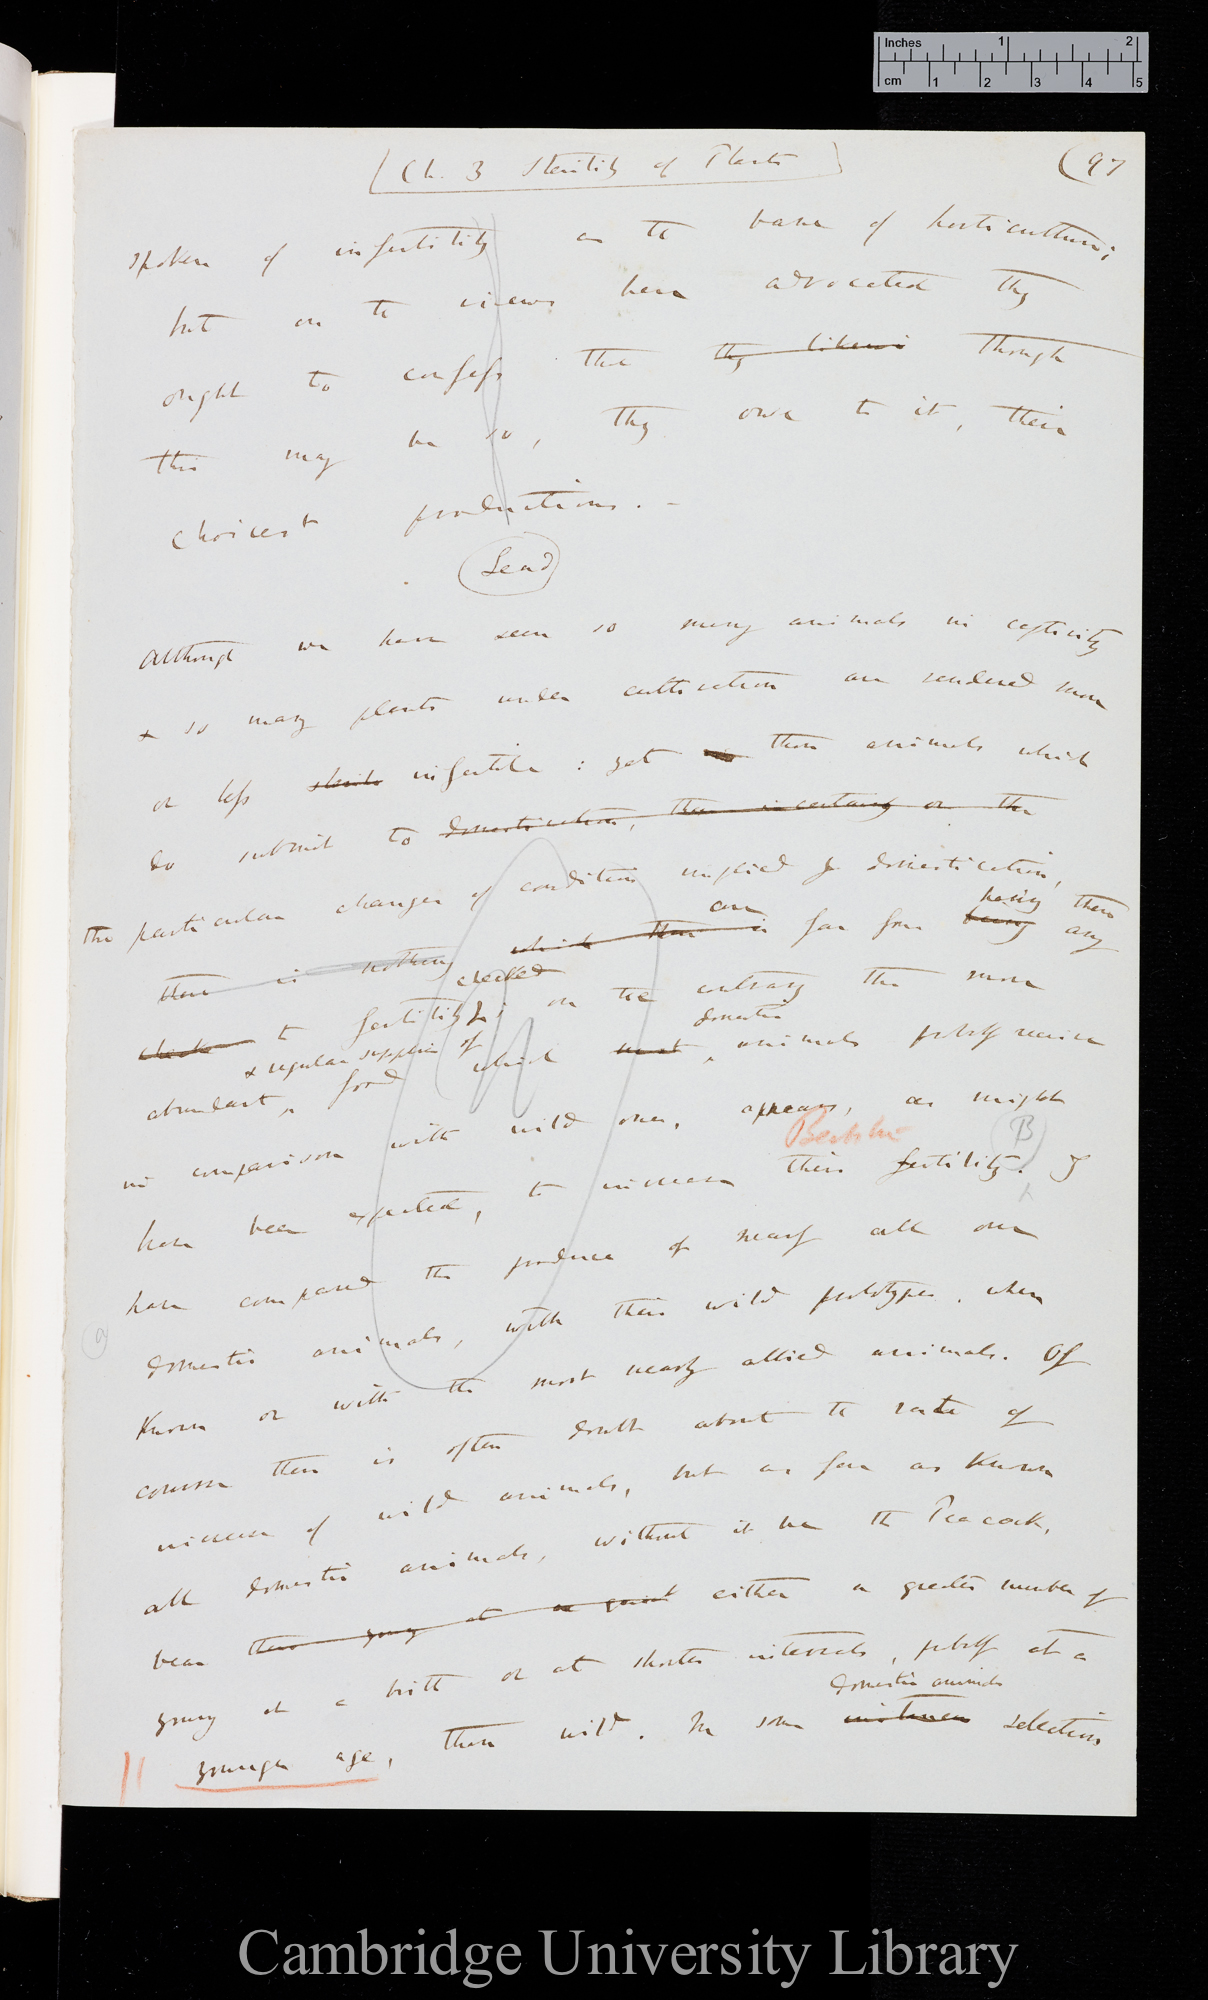 Inches 1 2
cm 1 2 3 4 5
Ch. 3 Sterility of Plants
(97
spoken of infertility as the bane of horticulture;
but on the views here advocated they
ought to confess that they likewi though
this may be so, they owe to it, their
choicest productions. —
Lead
Although we have seen so many animals in captivity
& so many plants under cultivation are rendered more
or less sterile infertile: yet those animals which
do submit to domestication, there certainly on the
the particular changes of conditions implied by domestication,
are having these
there is nothing which there is far from being any
checked
checks to fertility; on the contrary the more
& regular supplies of domestic
abundant food which most animals probably receive
in comparison with wild ones, appears, as might
B
have been expected, to increase their fertility. I
have compared the produce of nearly all our
a
domestic animals, with their wild prototypes, when
known or with the most nearly allied animals. Of
course there is often doubt about the rate of
increase of wild animals, but as far as known
all domestic animals, without it be the Peacock,
bear their young at either a greater number of
young at a birth or at shorter intervals, probably at a
domestic animals
younger age, than wild. In some instances selection
Cambridge University Library